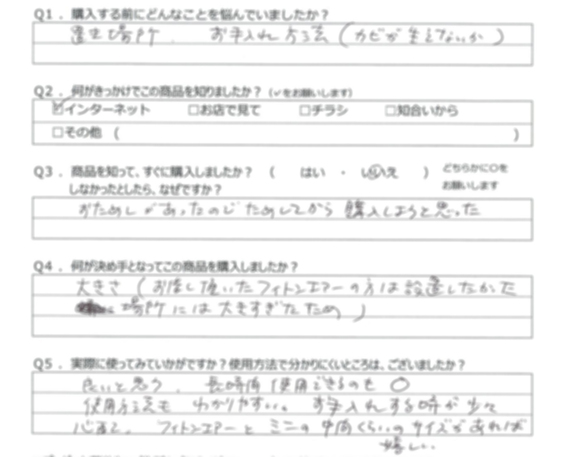 Q1．購入する前にどんなことを悩んでいましたか？
置き場所、お手入れ方法（カビが生えてないか）
Q2．何がきっかけでこの商品を知りましたか？（✓をお願いします）
☑インターネット　□お店で見て　□チラシ　□知合いから
□その他（　　　）
Q3．商品を知って、すぐに購入しましたか？（　はい　・　いいえ　）どちらかに○を
しなかったとしたら、なぜですか？　お願いします
おためしがあったのでためしてから購入しようと思った
Q4．何が決め手となってこの商品を購入しましたか？
大きさ（お貸し頂いたフィトンエアーの方は設置したかった
場所には大きすぎたため）
Q5．実際に使ってみていかがですか？使用方法で分かりにくいところは、ございましたか？
良いと思う、長時間使用できるのも○
使用方法もわかりやすい。お手入れする時が少々
心配。フィトンエアーとミニの中間くらいのサイズがあれば
嬉しい。